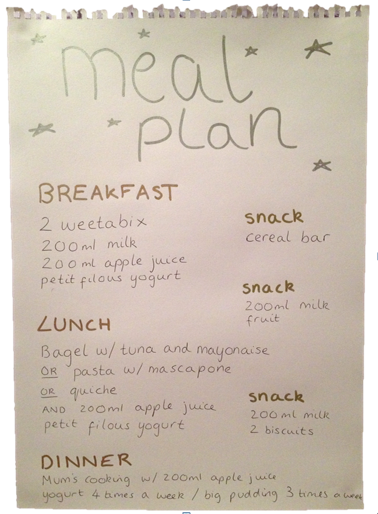 meal
plan
BREAKFAST
2 weetabix
200ml milk
200ml apple juice
petit filous yogurt
snack
cereal bar
snack
200ml milk
fruit
LUNCH
Bagel w/ tuna and mayonaise
OR pasta w/ mascapone
OR quiche
AND 200ml apple juice
petit filous yogurt
snack
200ml milk
2 biscuits
DINNER
Mum's cooking w/ 200ml apple juice
yogurt 4 times a week / big pudding 3 times a week